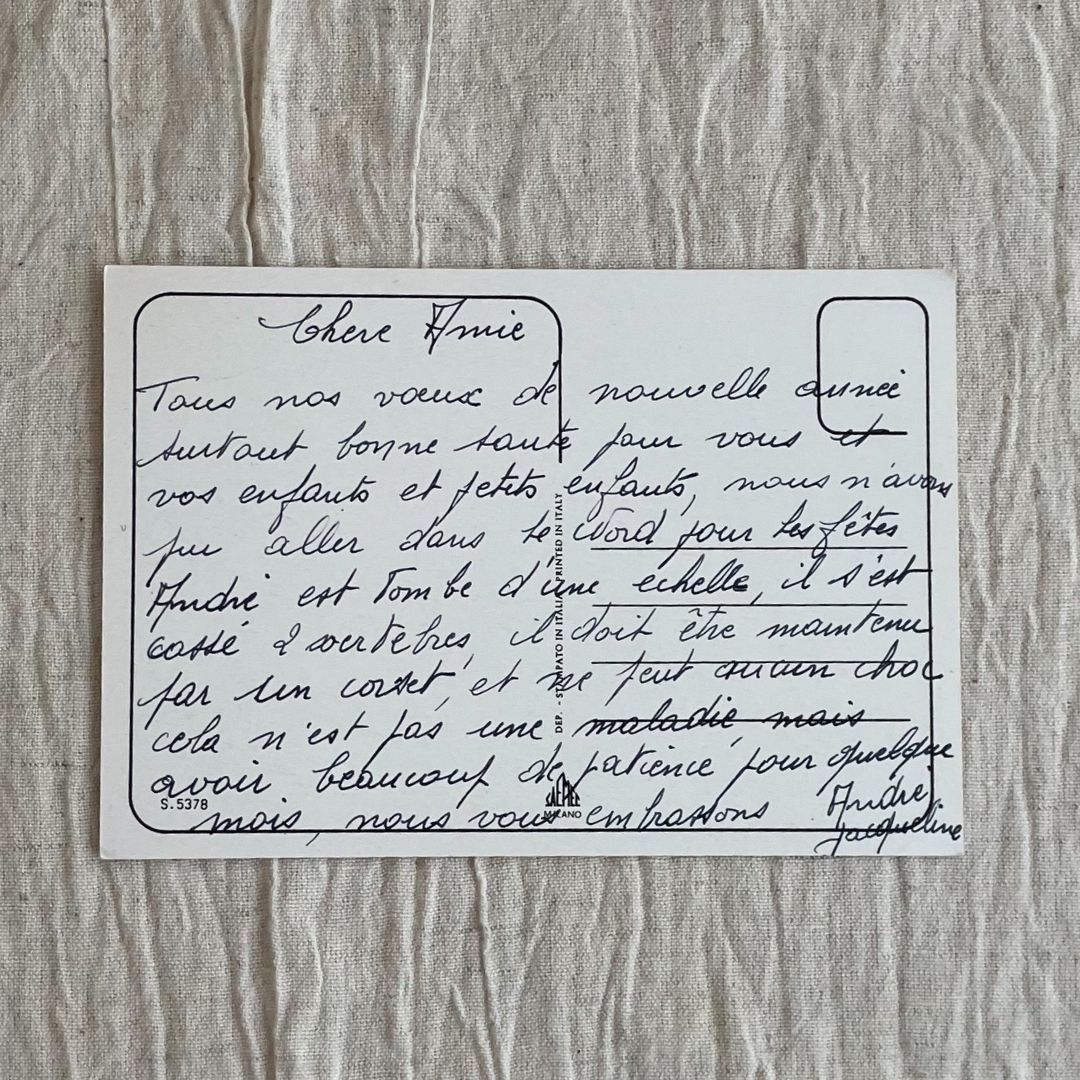 Chere Amie
Tous nos vœux de nouvelle année
surtout bonne santé pour vous et
vos enfants et petits enfants, nous n'avons
pu aller dans le Nord pour les fêtes
André est tombe d'une echelle, il s'est
cassé 2 vertèbres, il doit être maintenu
par un corset, et ne peut aucun choc
cela n'est pas une maladie, mais
avoir beaucoup de patience pour quelque
mois, nous vous embrassons
André
Jacqueline
DEP. - STAMPATO IN ITALIA - PRINTED IN ITALY
S. 5378
SAEMEC
MILANO